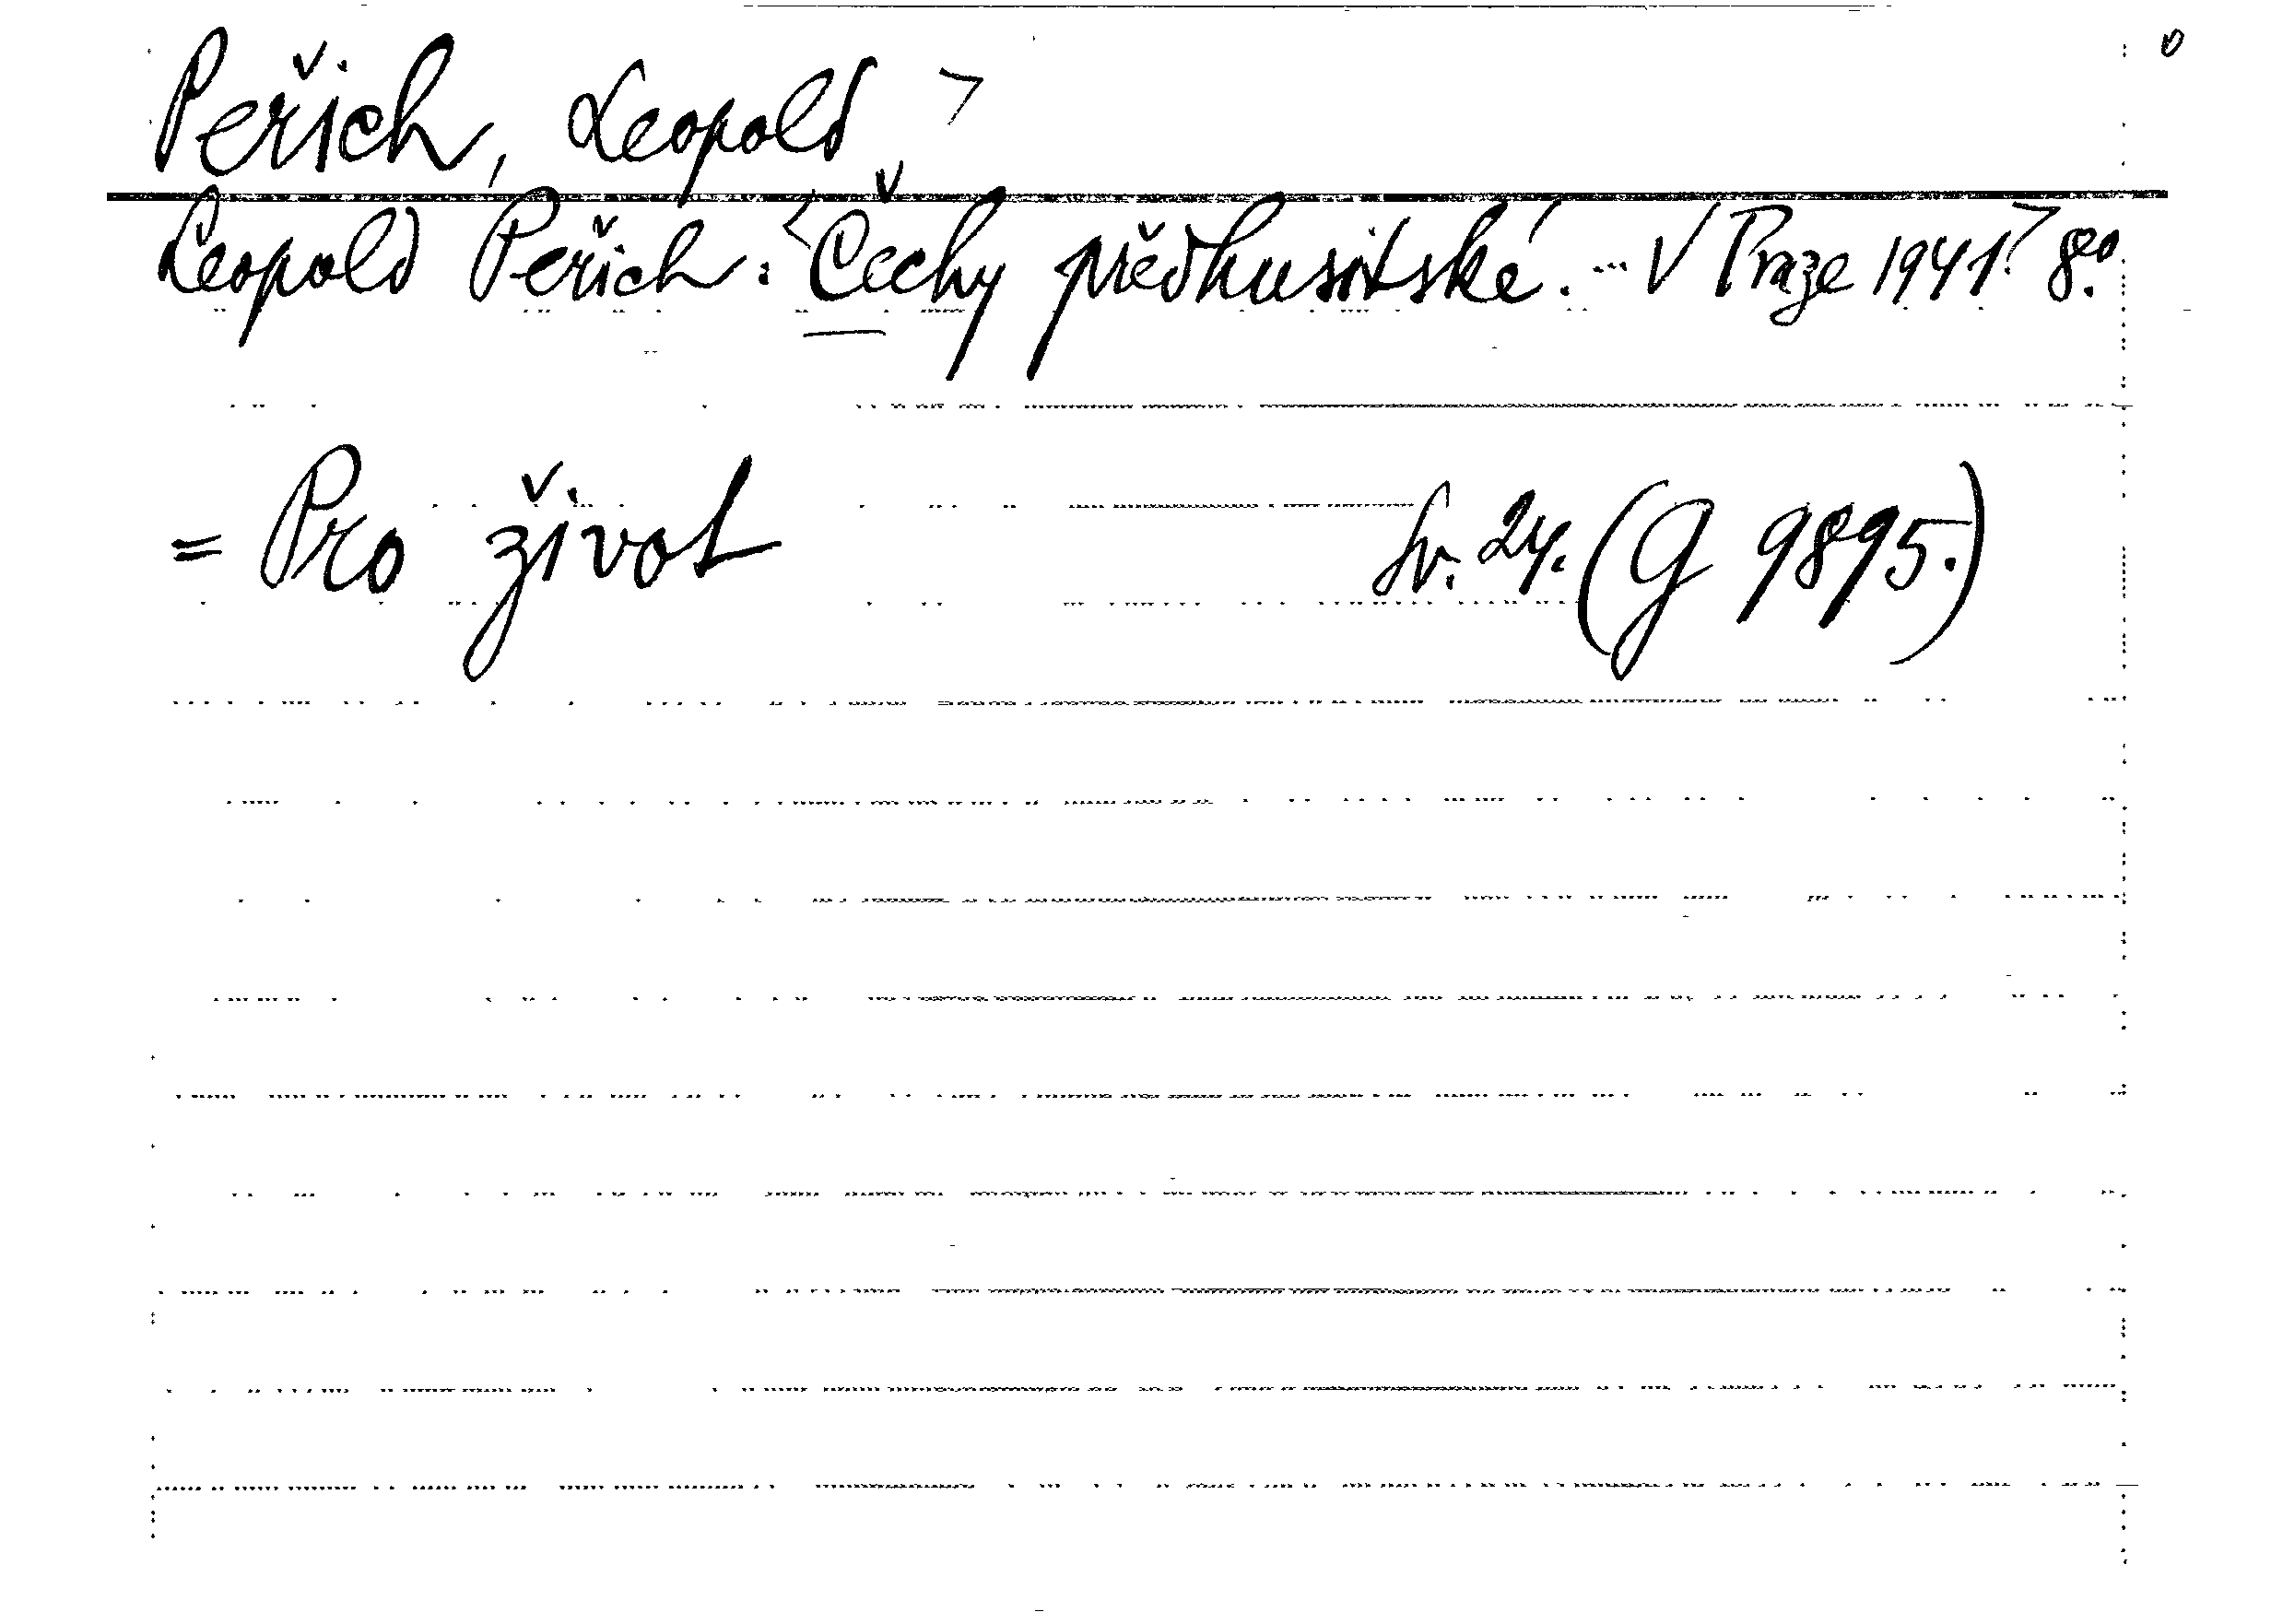 Peřich, Leopold
Leopold Peřich: Čechy předhusitské. ... V Praze 1941. 8o.
= Pro život Sv. 24. (G 9895.)